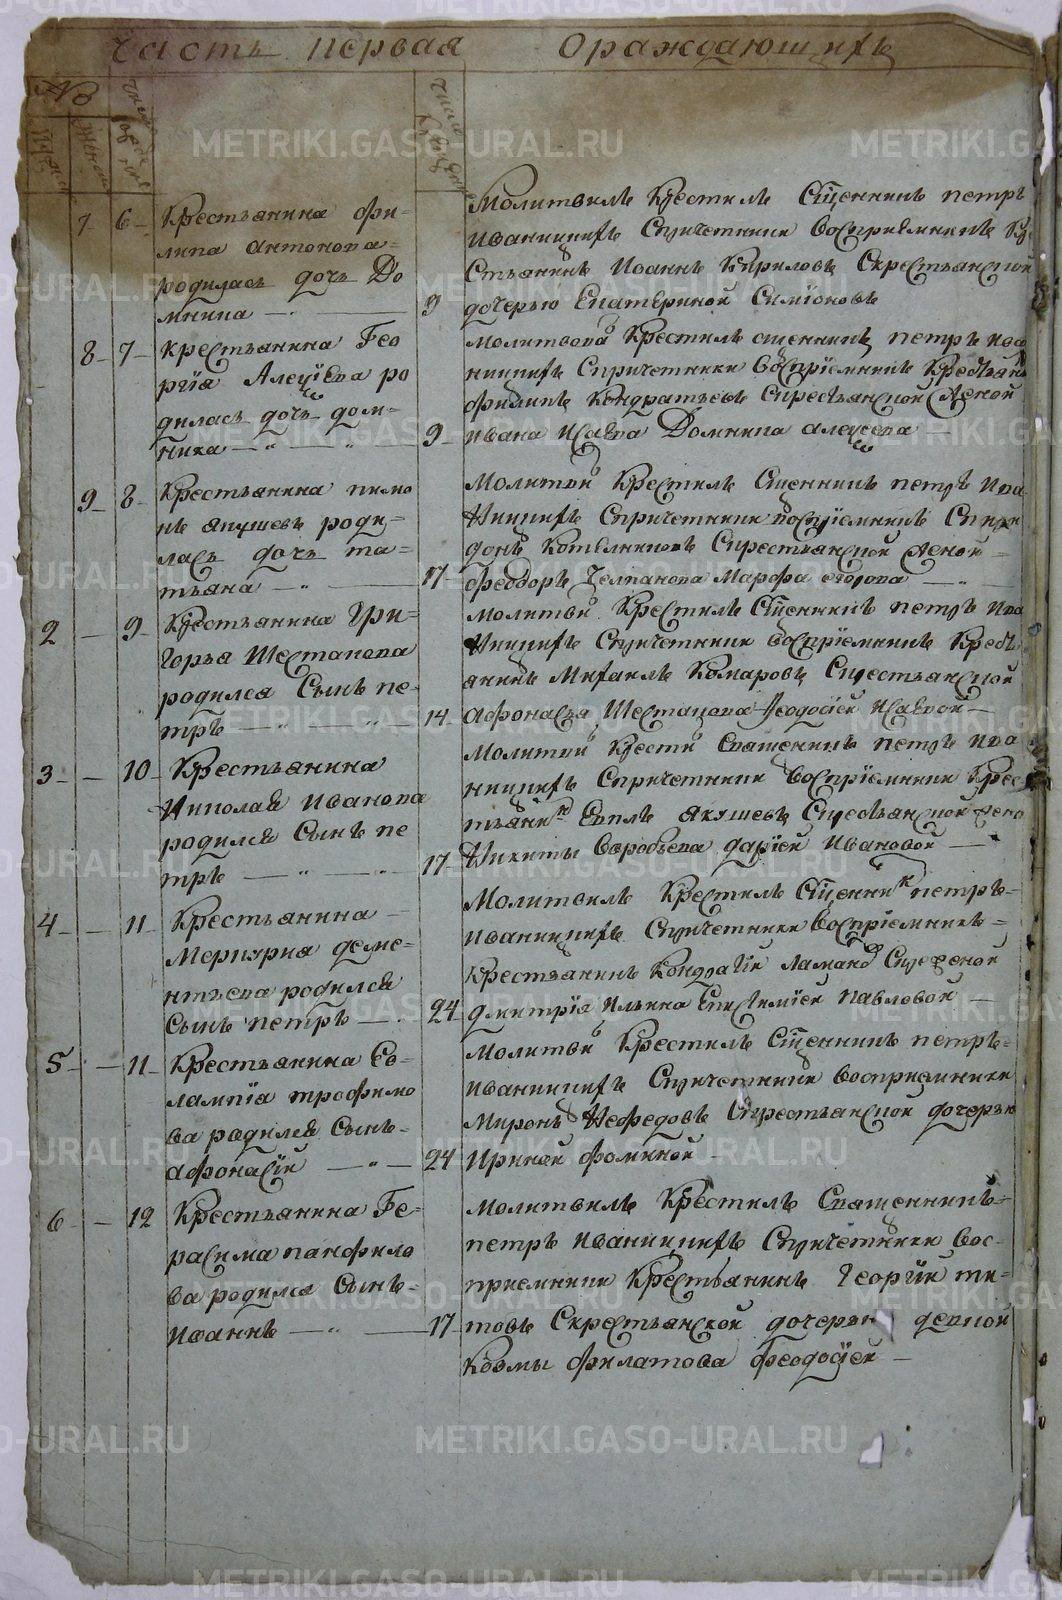 Часть первая О раждающихъ
№
7 6 Крестьянина Фи-
липа Антонова
родилась дочь До
мнина
9
Молитвилъ Крестилъ Сщенникъ петръ
иваницкихъ Спричетники восприемникъ Кре
стьянинъ Иоаннъ Кириловъ Скрестьянской
дочерью Екатериной Симионовъ
8 7 крестьянина Гео
ргия Алецiева ро
дилась дочь дом-
ника
9
молитвовъ Крестилъ сщенникъ петръ ива
ницкихъ Спричетники восприемникъ Крестьян
филипъ Кондратьевъ Скрестьянской женой
ивана Исаева Домнина алецеева
9 8 Крестьянина пимо
нъ якушевъ роди
лась дочь та-
тьяна
17
Молитвов Крестилъ Сщенникъ петръ ива
Ницкихъ Спричетники восприемникъ Спири
донъ Котельниковъ Скрестьянской женой
феодоръ Челпанова Марфа егорова
2 9 Крестьянина Гри-
горья Шестакова
родился Сынъ пе-
тръ
14
молитвов Крестилъ Сщенникъ петръ ива
Ницкихъ Спричетники восприемникъ Крест
янинъ Михаилъ Комаровъ Скрестьянской
Афонасья Шестакова Феодосией Исаевой
3 10 Крестьянина
Николая иванова
родился Сынъ пе
тръ
17
молитвов Крести Священникъ петръ ива
ницкихъ Спричетники восприемники Крес
тьянин Евпъ якушевъ Скрестьянской жено
Никиты воробьева дарией ивановой
4 11 Крестьянина
Меркурия деме-
нтьева родился
Сынъ петръ
24
Молитвилъ Крестилъ Сщенник петръ
иваницкихъ Спричетники восприемникъ
Крестьянинъ кондратий Ламанов Скреженой
дмитрия ильина Епистимией павловой
5 11 Крестьянина Ев-
лампия трофимо
ва родился Сынъ
афонасий
24
молитвов Крестилъ Сщенникъ петръ
иваницкихъ Спричетники восприемники
миронъ Нефедовъ Скрестьянской дочерью
Ириной фоминой
6 12 Крестьянина Ге-
расима панфило
ва родился Сынъ
иоаннъ
17
молитвилъ Крестилъ Священникъ
петръ иваницкихъ Спричетники вос-
приемники Крестьянинъ Георгий ти-
товъ Скрестьянской дочерью девкой
Козмы филатова феодосией
METRIKI.GASO-URAL.RU